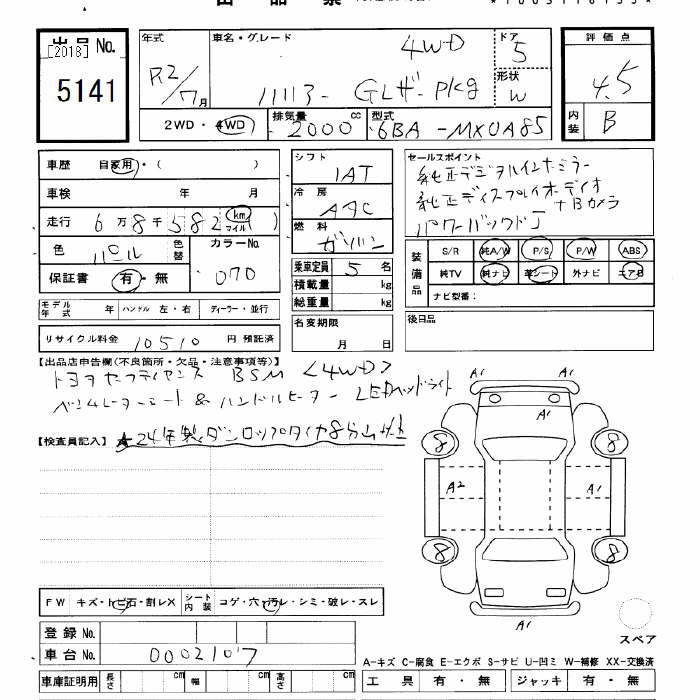 出品No.
[2018]
5141
年式
R2/7月
車名・グレード
4WD
ハリアー GLザーPkg
ドア
5
形状
W
評価点
4.5
内装
B
2WD・4WD
排気量
2000
cc
型式
6BA-MXUA85
車歴
自家用・( )
車検
年 月
走行
6万8千582(km マイル)
色
パール
色替
カラーNo.
070
保証書
有・無
シフト
IAT
冷房
AAC
燃料
ガソリン
乗車定員 5 名
積載量 kg
総重量 kg
セールスポイント
純正デジタルインナーミラー
純正ディスプレイオーディオ
+Bカメラ
パワーバックドア
装備品
S/R 純A/W P/S P/W ABS
純TV 純ナビ 革シート 外ナビ エアB
ナビ型番:
モデル年式 年 ハンドル 左・右 ディーラー・並行
名変期限
月 日
後日品
リサイクル料金 10510 円 預託済
【出品店申告欄(不良箇所・欠品・注意事項等)】
トヨタセーフティセンス BSM <4WD>
ベンチレーターシート & ハンドルヒーター LEDヘッドライト
【検査員記入】
★24年製ダンロップタイヤ8分山付
A1
A1
8
8
A2
A1
8
8
A1
スペア
FW キズ・トビ石・割レX
シート内装 コゲ・穴・汚レ・シミ・破レ・スレ
登録No.
車台No. 0002107
車庫証明用 長さ cm 幅 cm 高さ cm
A-キズ C-腐食 E-エクボ S-サビ U-凹ミ W-補修 XX-交換済
工具 有・無 ジャッキ 有・無